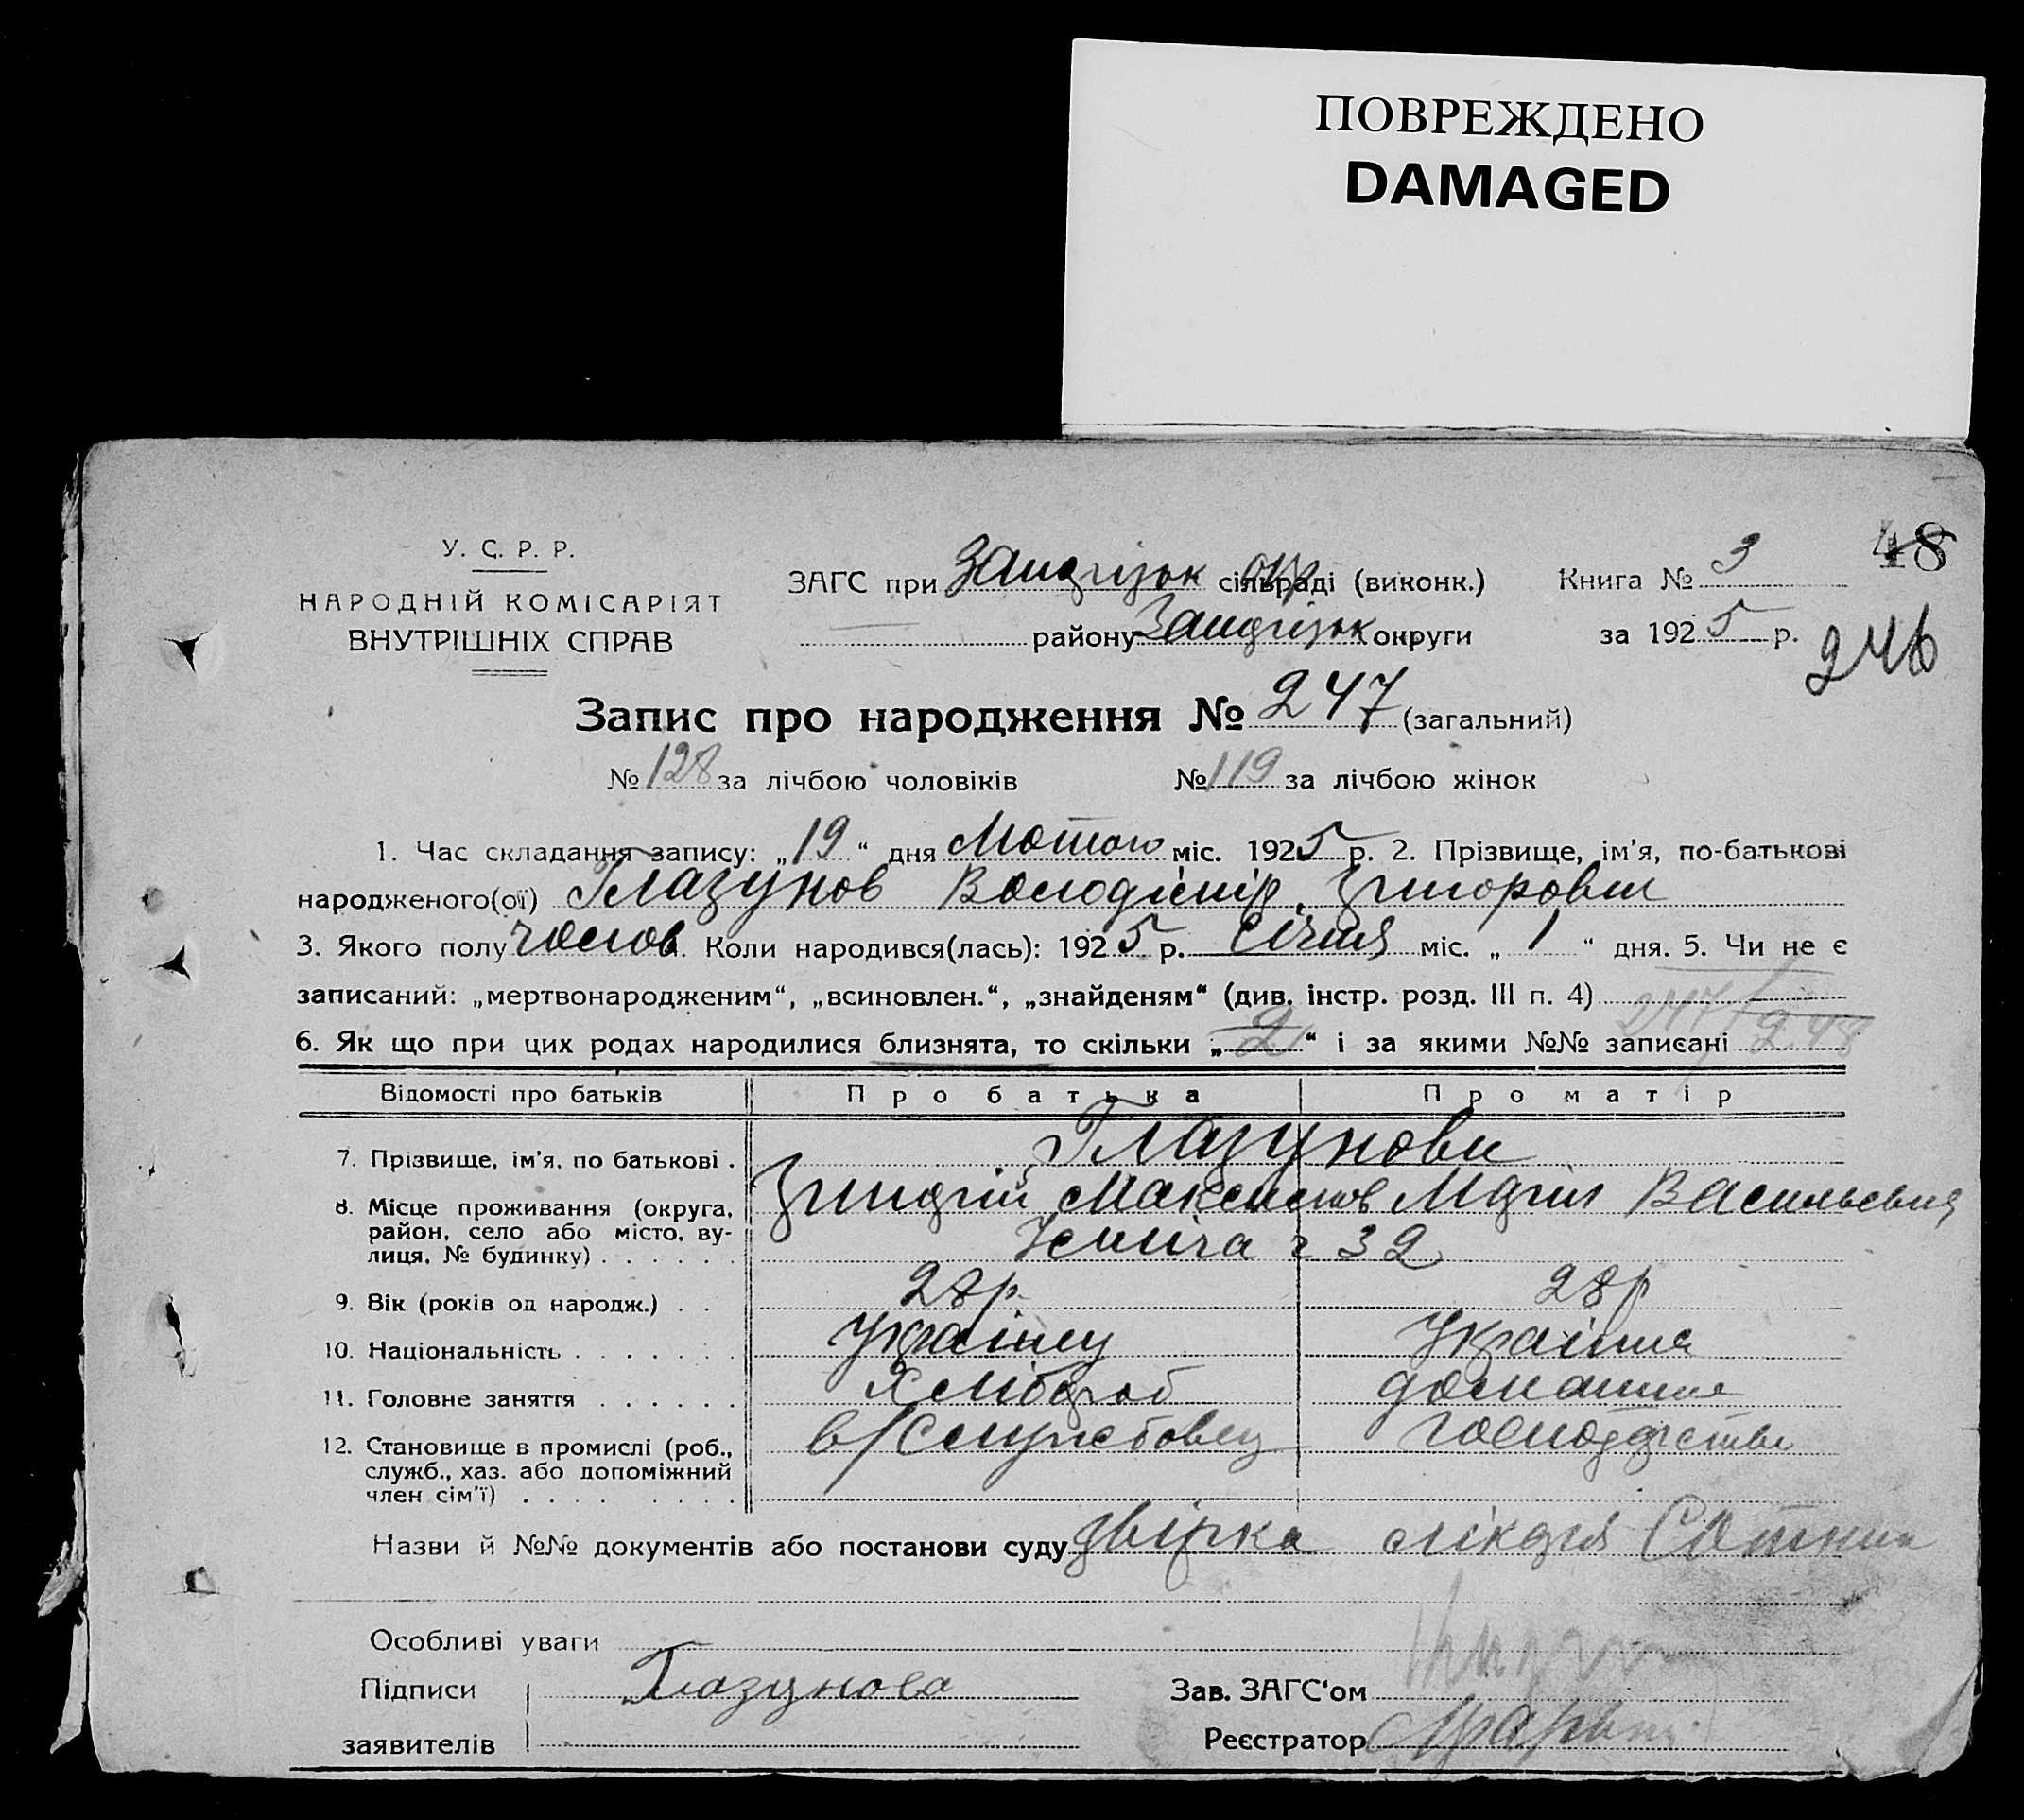 ПОВРЕЖДЕНО
DAMAGED
48
У. С. Р. Р.
НАРОДНІЙ КОМІСАРІЯТ
ВНУТРІШНІХ СПРАВ
ЗАГС при сільраді (виконк.)
Книга № 3
району округи
за 1925 р.
246
Запис про народження № 247 (загальний)
№ 128 за лічбою чоловіків № 119 за лічбою жінок
1. Час складання запису: „19“ дня Лютого міс. 1925 р. 2. Прізвище, ім'я, по-батькові
народженого(ої) Глазунов Володімір Григоровик
3. Якого полу чолов. Коли народився(лась): 1925 р. Січня міс. „1“ дня. 5. Чи не є
записаний: „мертвонародженим“, „всиновлен.“, „знайденям“ (див. інстр. розд. III п. 4)
6. Як що при цих родах народилися близнята, то скільки „2“ і за якими №№ записані 247/248
Відомості про батьків Про батька Про матір
7. Прізвище, ім'я, по батькові . Глазунови
8. Місце проживання (округа, Григрій Максимов Марія Васильевна
район, село або місто, ву-
лиця, № будинку) . . . . . . 32
9. Вік (років од народж.) . . 28 р. 28 р
10. Національність . . . . . . . Українец Україн­ка
11. Головне заняття . . . . . . Хлібороб домашнє
12. Становище в промислі (роб., в/службовец господарство
служб., хаз. або допоміжний
член сім'ї) . . . . . . . .
Назви й №№ документів або постанови суду двірка лікаря Сотник
Особливі уваги
Підписи Глазунова Зав. ЗАГС'ом
заявителів Реєстратор